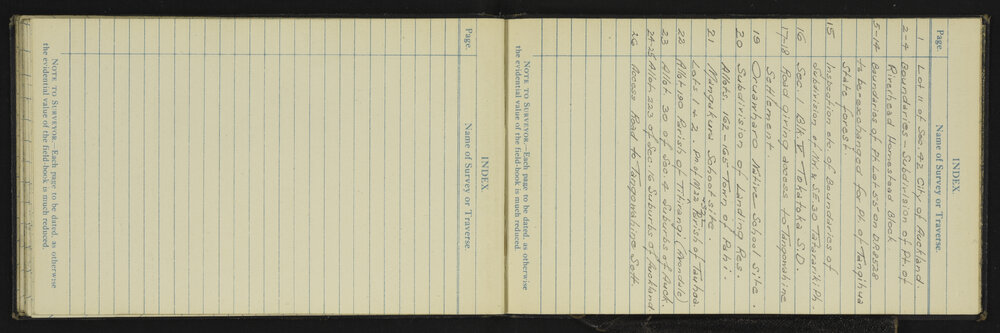 INDEX.
Page. Name of Survey or Traverse.
1 Lot 11 of Sec. 42 City of Auckland.
2-4 Boundaries - Subdivision of Pt. of
Riverhead Homestead Block
5-14 Boundaries of Pt Lot 25 on DR8528
to be exchanged for Pt of Tangihua
State Forest
15 Inspection etc of Boundaries of
Subdivision of NW & SE 30 Tatarariki Ph.
16 Sec. 1 Blk. V Tokatoka S.D.
17-18 Road giving access to Tangowahine
Settlement
19 Oruanharo Native School Site.
20 Subdivision of Landing Res.
Allots. 162-165 Town of Pahi.
21 Mangakura School site.
Lots 1 & 2. Pt of M32 Parish of Tauhoa
22 Allot 190 Parish of Titirangi. (Avondale)
23 Allot. 30 of Sec 9 Suburbs of Auck.
24-25 Allot. 223 of Sec. 16 Suburbs of Auckland
26 Access Road to Tangowahine Sett.
NOTE TO SURVEYOR.—Each page to be dated, as otherwise
the evidential value of the field-book is much reduced.
INDEX.
Page. Name of Survey or Traverse.
NOTE TO SURVEYOR.—Each page to be dated, as otherwise
the evidential value of the field-book is much reduced.